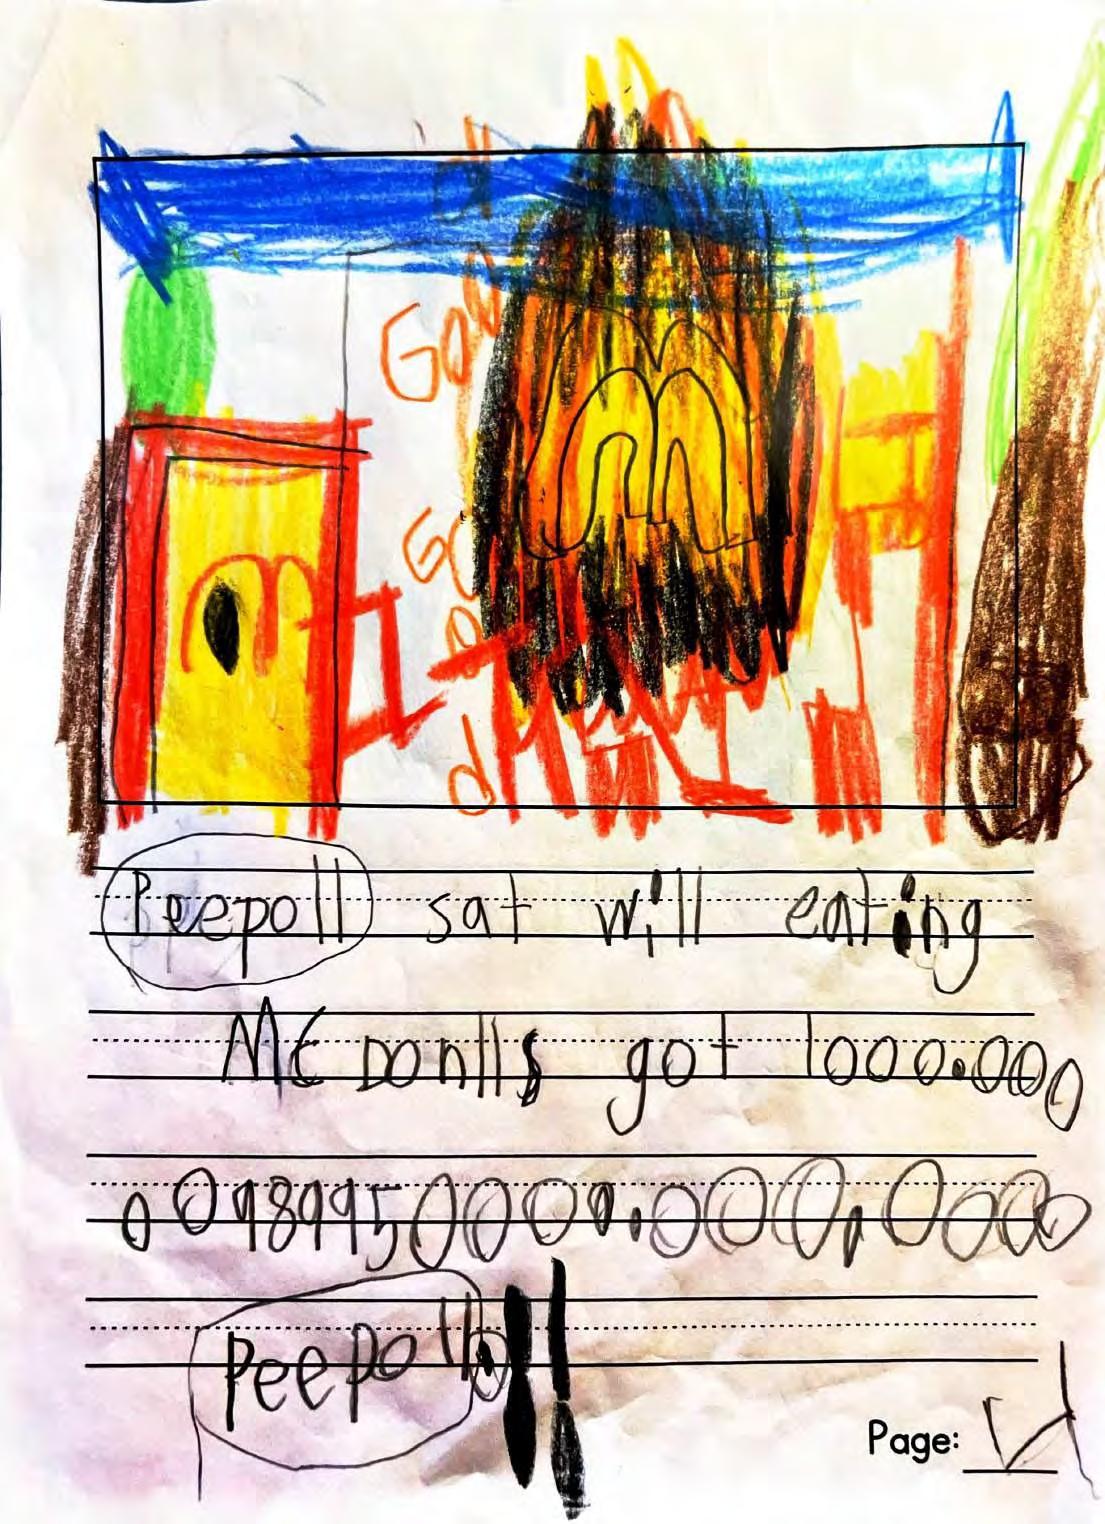 Good
Good
m
m
Peepoll sat will eating
MC Donlls got 1000.000
00989950000.000,0000
Peepoll!!
Page: 4